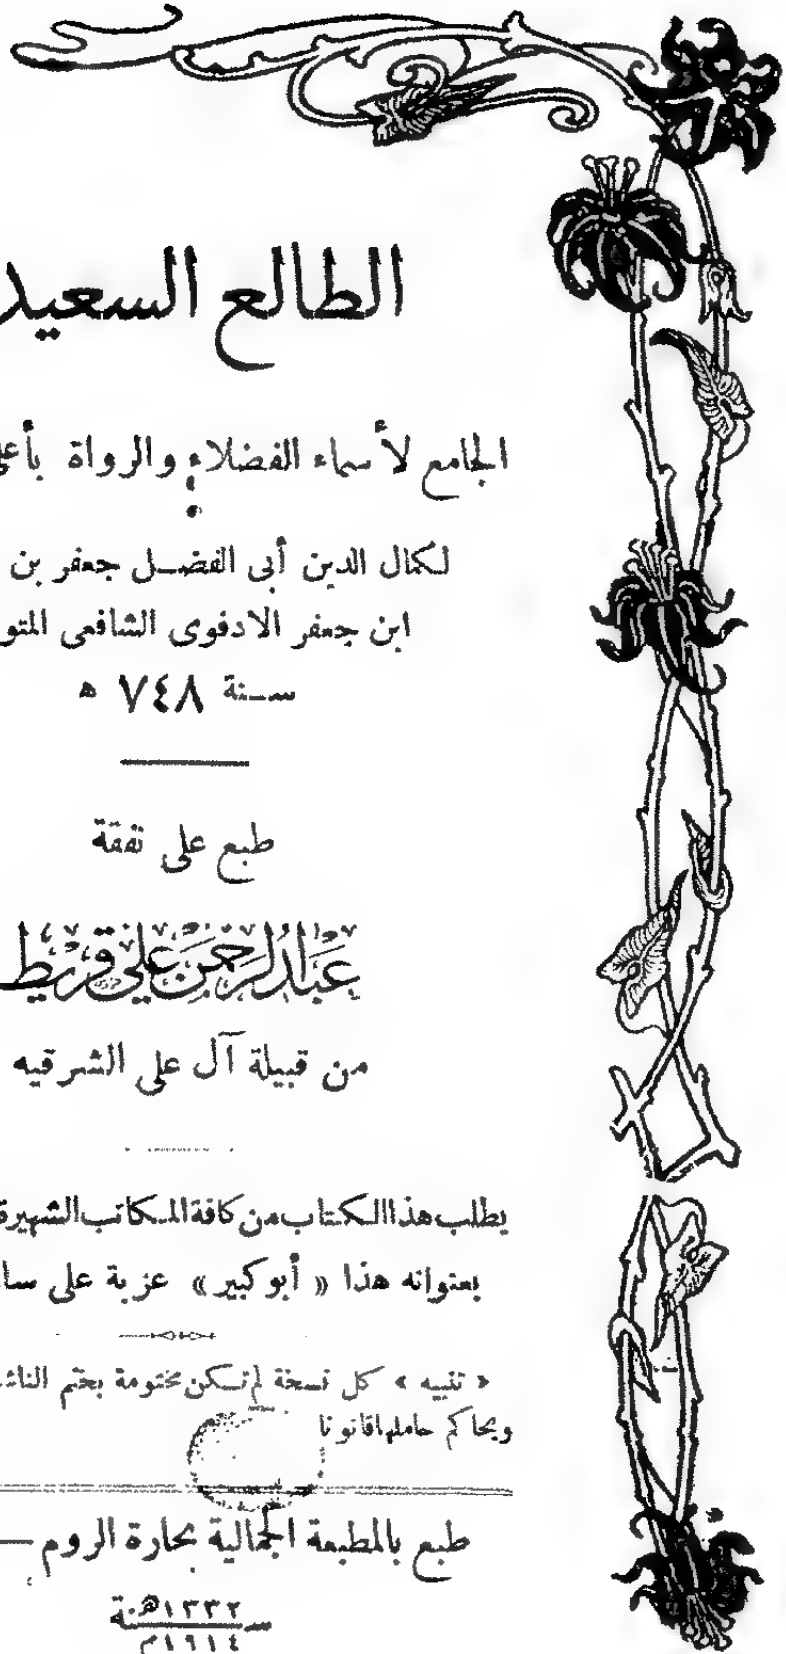 الطالع السعيد
الجامع لأسماء الفضلاء والرواة بأعلى
لكمال الدين أبى الفضل جعفر بن
ابن جعفر الادفوى الشافعى المتو
سنة ٧٤٨ ه
طبع على نفقة
عَبْدُ الرَّحْمَن عَلِى قرَيّط
من قبيلة آل على الشرقيه
يطلب هذا الكتاب من كافة المكاتب الشهيرة
بعنوانه هذا « أبو كبير » عزبة على سا
« تنبيه » كل نسخة لم تكن مختومة بختم الناش
ويحاكم حاملها قانونا
طبع بالمطبعة الجمالية بحارة الروم —
سنة ١٣٣٢ه
١٩١٤م